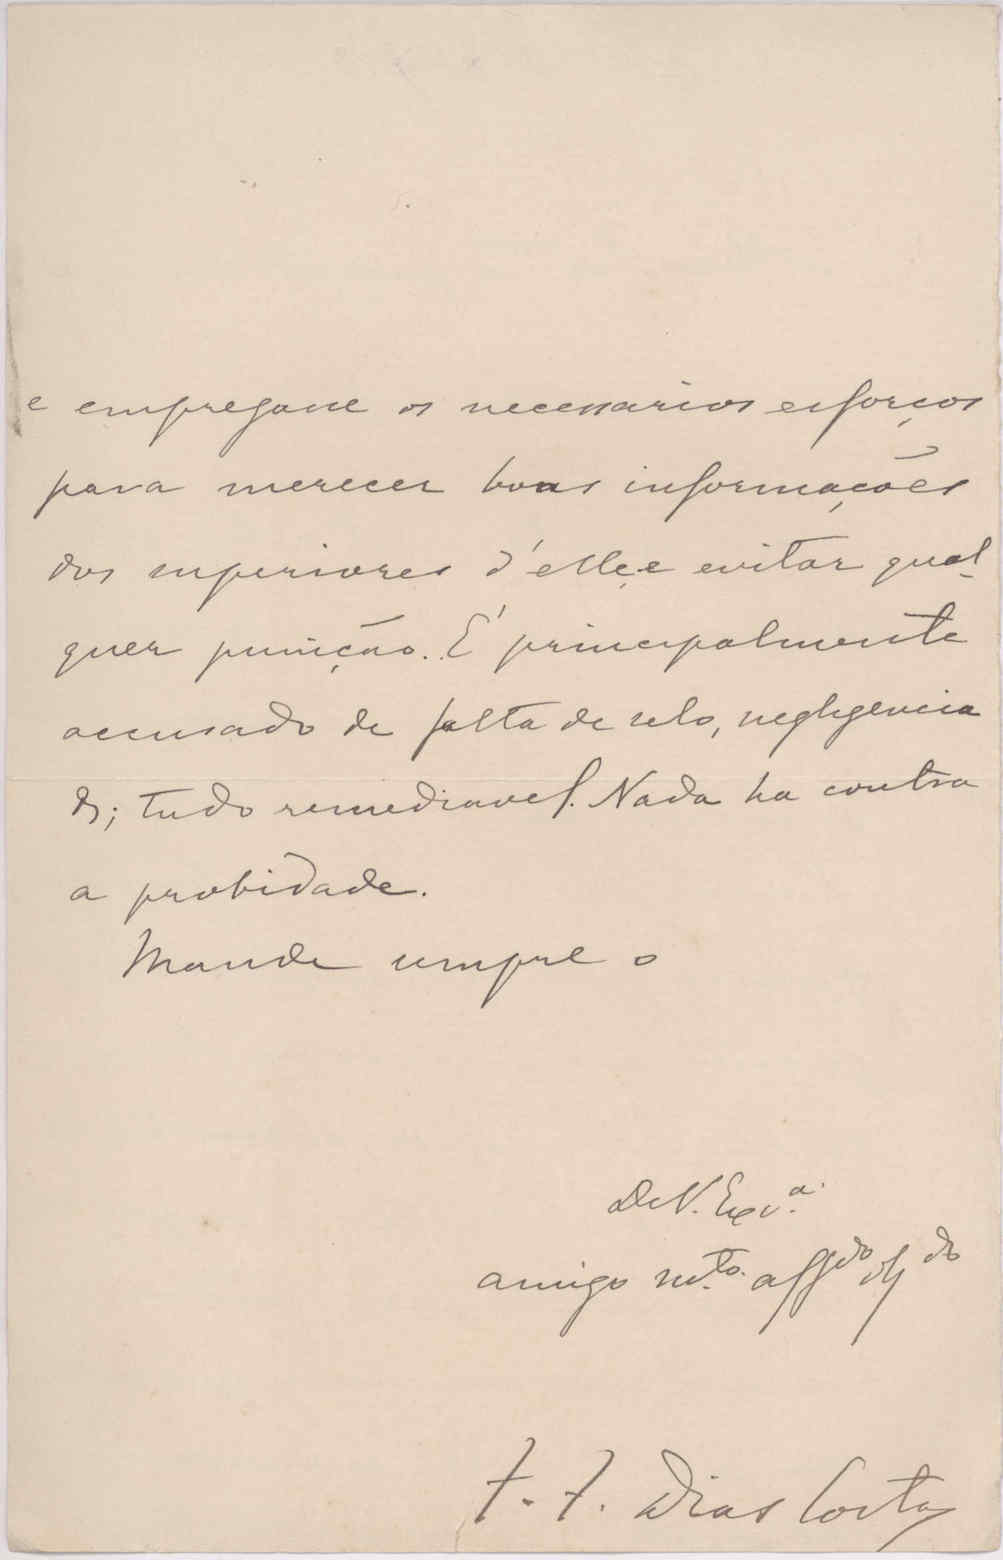 e empregasse os necessarios esforços
para merecer boas informações
dos superiores d'elle e evitar qual-
quer punição. É principalmente
accusado de falta de zelo, negligencia
&; tudo remediavel. Nada ha contra
a probidade.
Mande sempre o
De V. Exc.ª
amigo m.to aff.do obg.do
F. F. Dias Costa